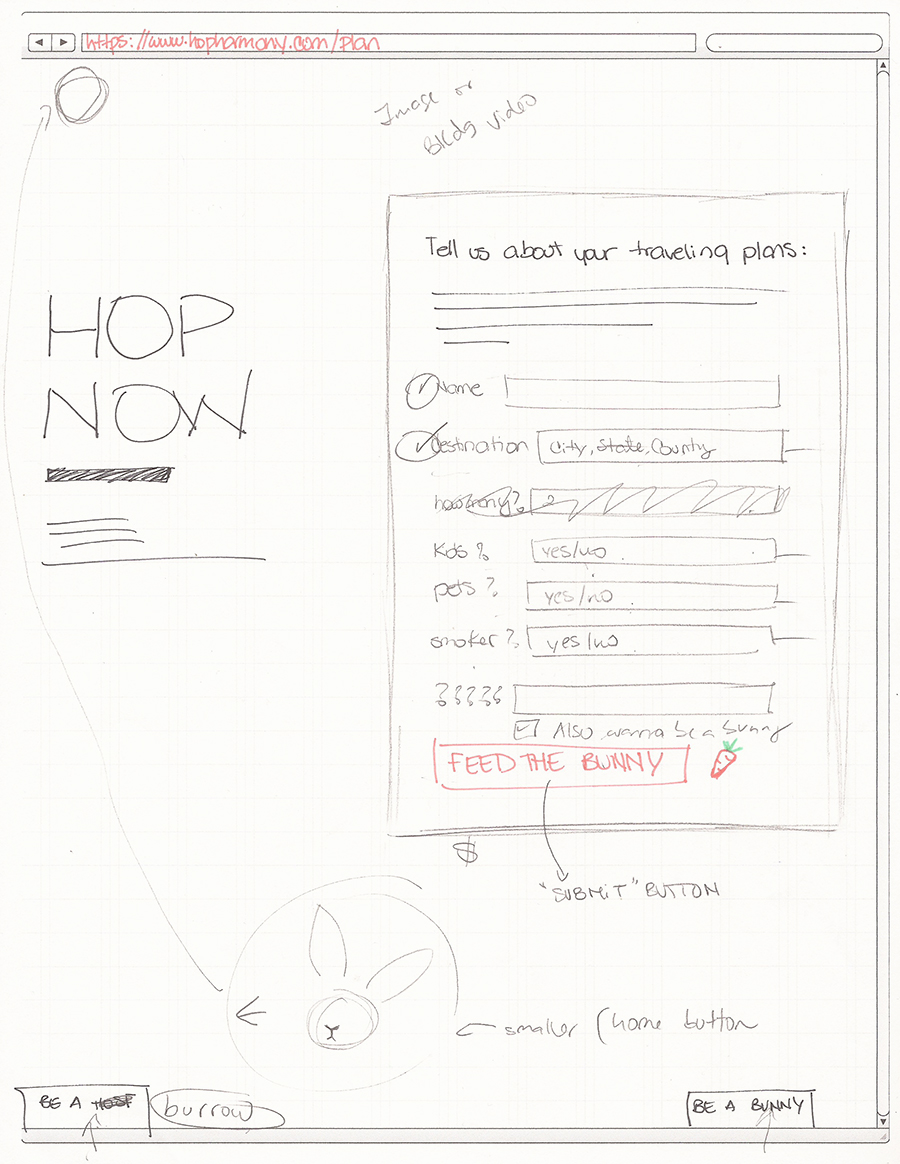 https://www.hopharmony.com/plan
Image or
Bkdg video
Tell us about your traveling plans:
HOP
NOW
Name
destination City, State, County
how many?
Kids? yes/no
pets? yes/no
smoker? yes/no
?????
Also wanna be a bunny
FEED THE BUNNY
$
"SUBMIT" BUTTON
smaller (home button
BE A HOST burrow
BE A BUNNY